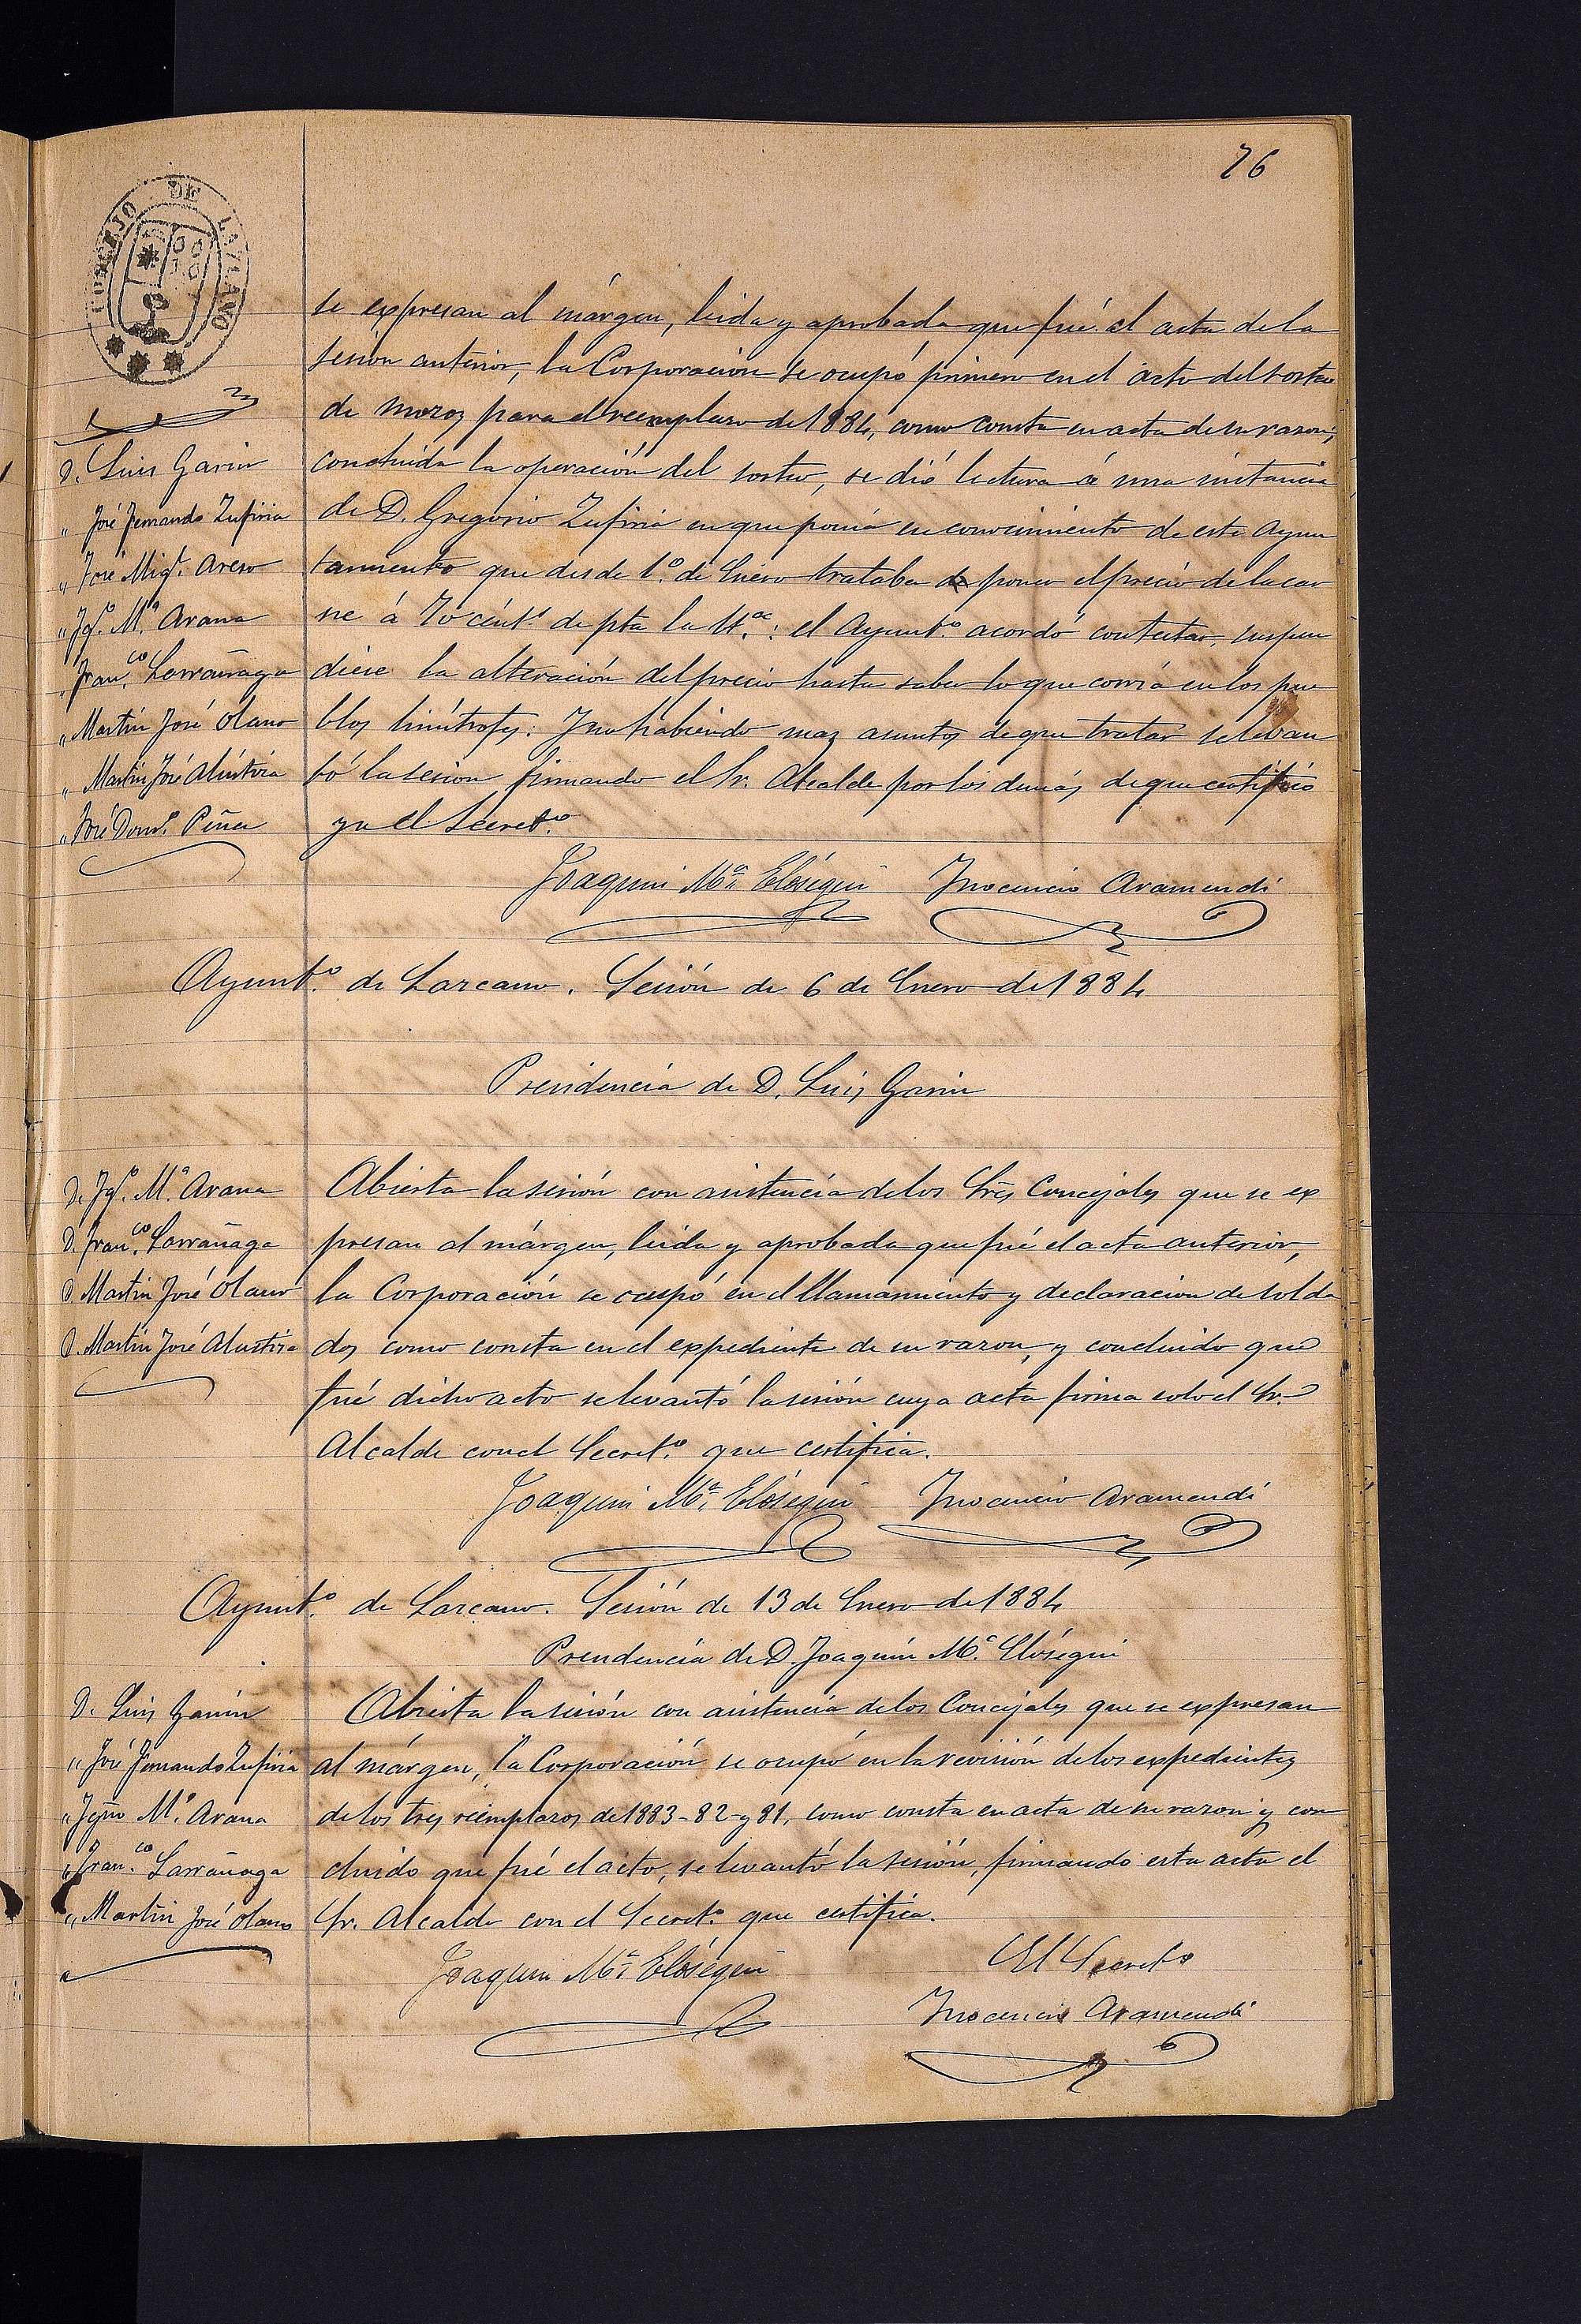 76
CONCEJO DE LAZCANO
D. Luis Garin
„ José Fernando Zufiria
„ José Mig.l Areso
„ Jq.n M.a Arana
„ Fran.co Larrañaga
„ Martin José Olano
„ Martin José Alustiza
„ José Dom.o Piña
se expresan al márgen, leida y aprobada que fué el acta de la
sesion anterior, la Corporación se ocupó primero en el acto del sorteo
de mozos para el reemplazo de 1884, como consta en acta de su razon;
concluida la operación del sorteo, se dió lectura á una instancia
de D. Gregorio Zufiria en que ponia en conocimiento de este Ayun
tamiento que desde 1.o de Enero trataba de poner el precio de la car
ne á 70 cént.s de pta la ll.a: el Ayunt.o acordó contestar, suspen
diese la alteración del precio hasta saber lo que corria en los pue
blos limítrofes. Y no habiendo mas asuntos de que tratar se levan
tó la sesion firmando el Sr. Alcalde por los demás de que certifico
yo el Secret.o
Joaquin M.a Elósegui Inocencio Aramendi
Ayunt.o de Lazcano. Sesión de 6 de Enero de 1884
Presidencia de D. Luis Garin
D. Jq.n M.a Arana
D. Fran.co Larrañaga
D. Martin José Olano
D. Martin José Alustiza
Abierta la sesión con asistencia de los Sres Concejales que se ex
presan al márgen, leida y aprobada que fué el acta anterior,
la Corporación se ocupó en el llamamiento y declaracion de solda
dos como consta en el expediente de su razon, y concluido que
fué dicho acto se levantó la sesión cuya acta firma solo el Sr.
Alcalde con el Secret.o que certifica.
Joaquin M.a Elósegui Inocencio Aramendi
Ayunt.o de Lazcano. Sesión de 13 de Enero de 1884
Presidencia de D. Joaquin M.a Elósegui
D. Luis Garin
„ José Fernando Zufiria
„ Jqn M.a Arana
„ Fran.co Larrañaga
„ Martin José Olano
Abierta la sesión con asistencia de los Concejales que se expresan
al márgen, la Corporación se ocupó en la revisión de los expedientes
de los tres reemplazos de 1883-82-y 81, como consta en acta de su razon y con
cluido que fué el acto, se levantó la sesión, firmando esta acta el
Sr. Alcalde con el Secret.o que certifica.
Joaquin M.a Elósegui
El Secret.o
Inocencio Aramendi